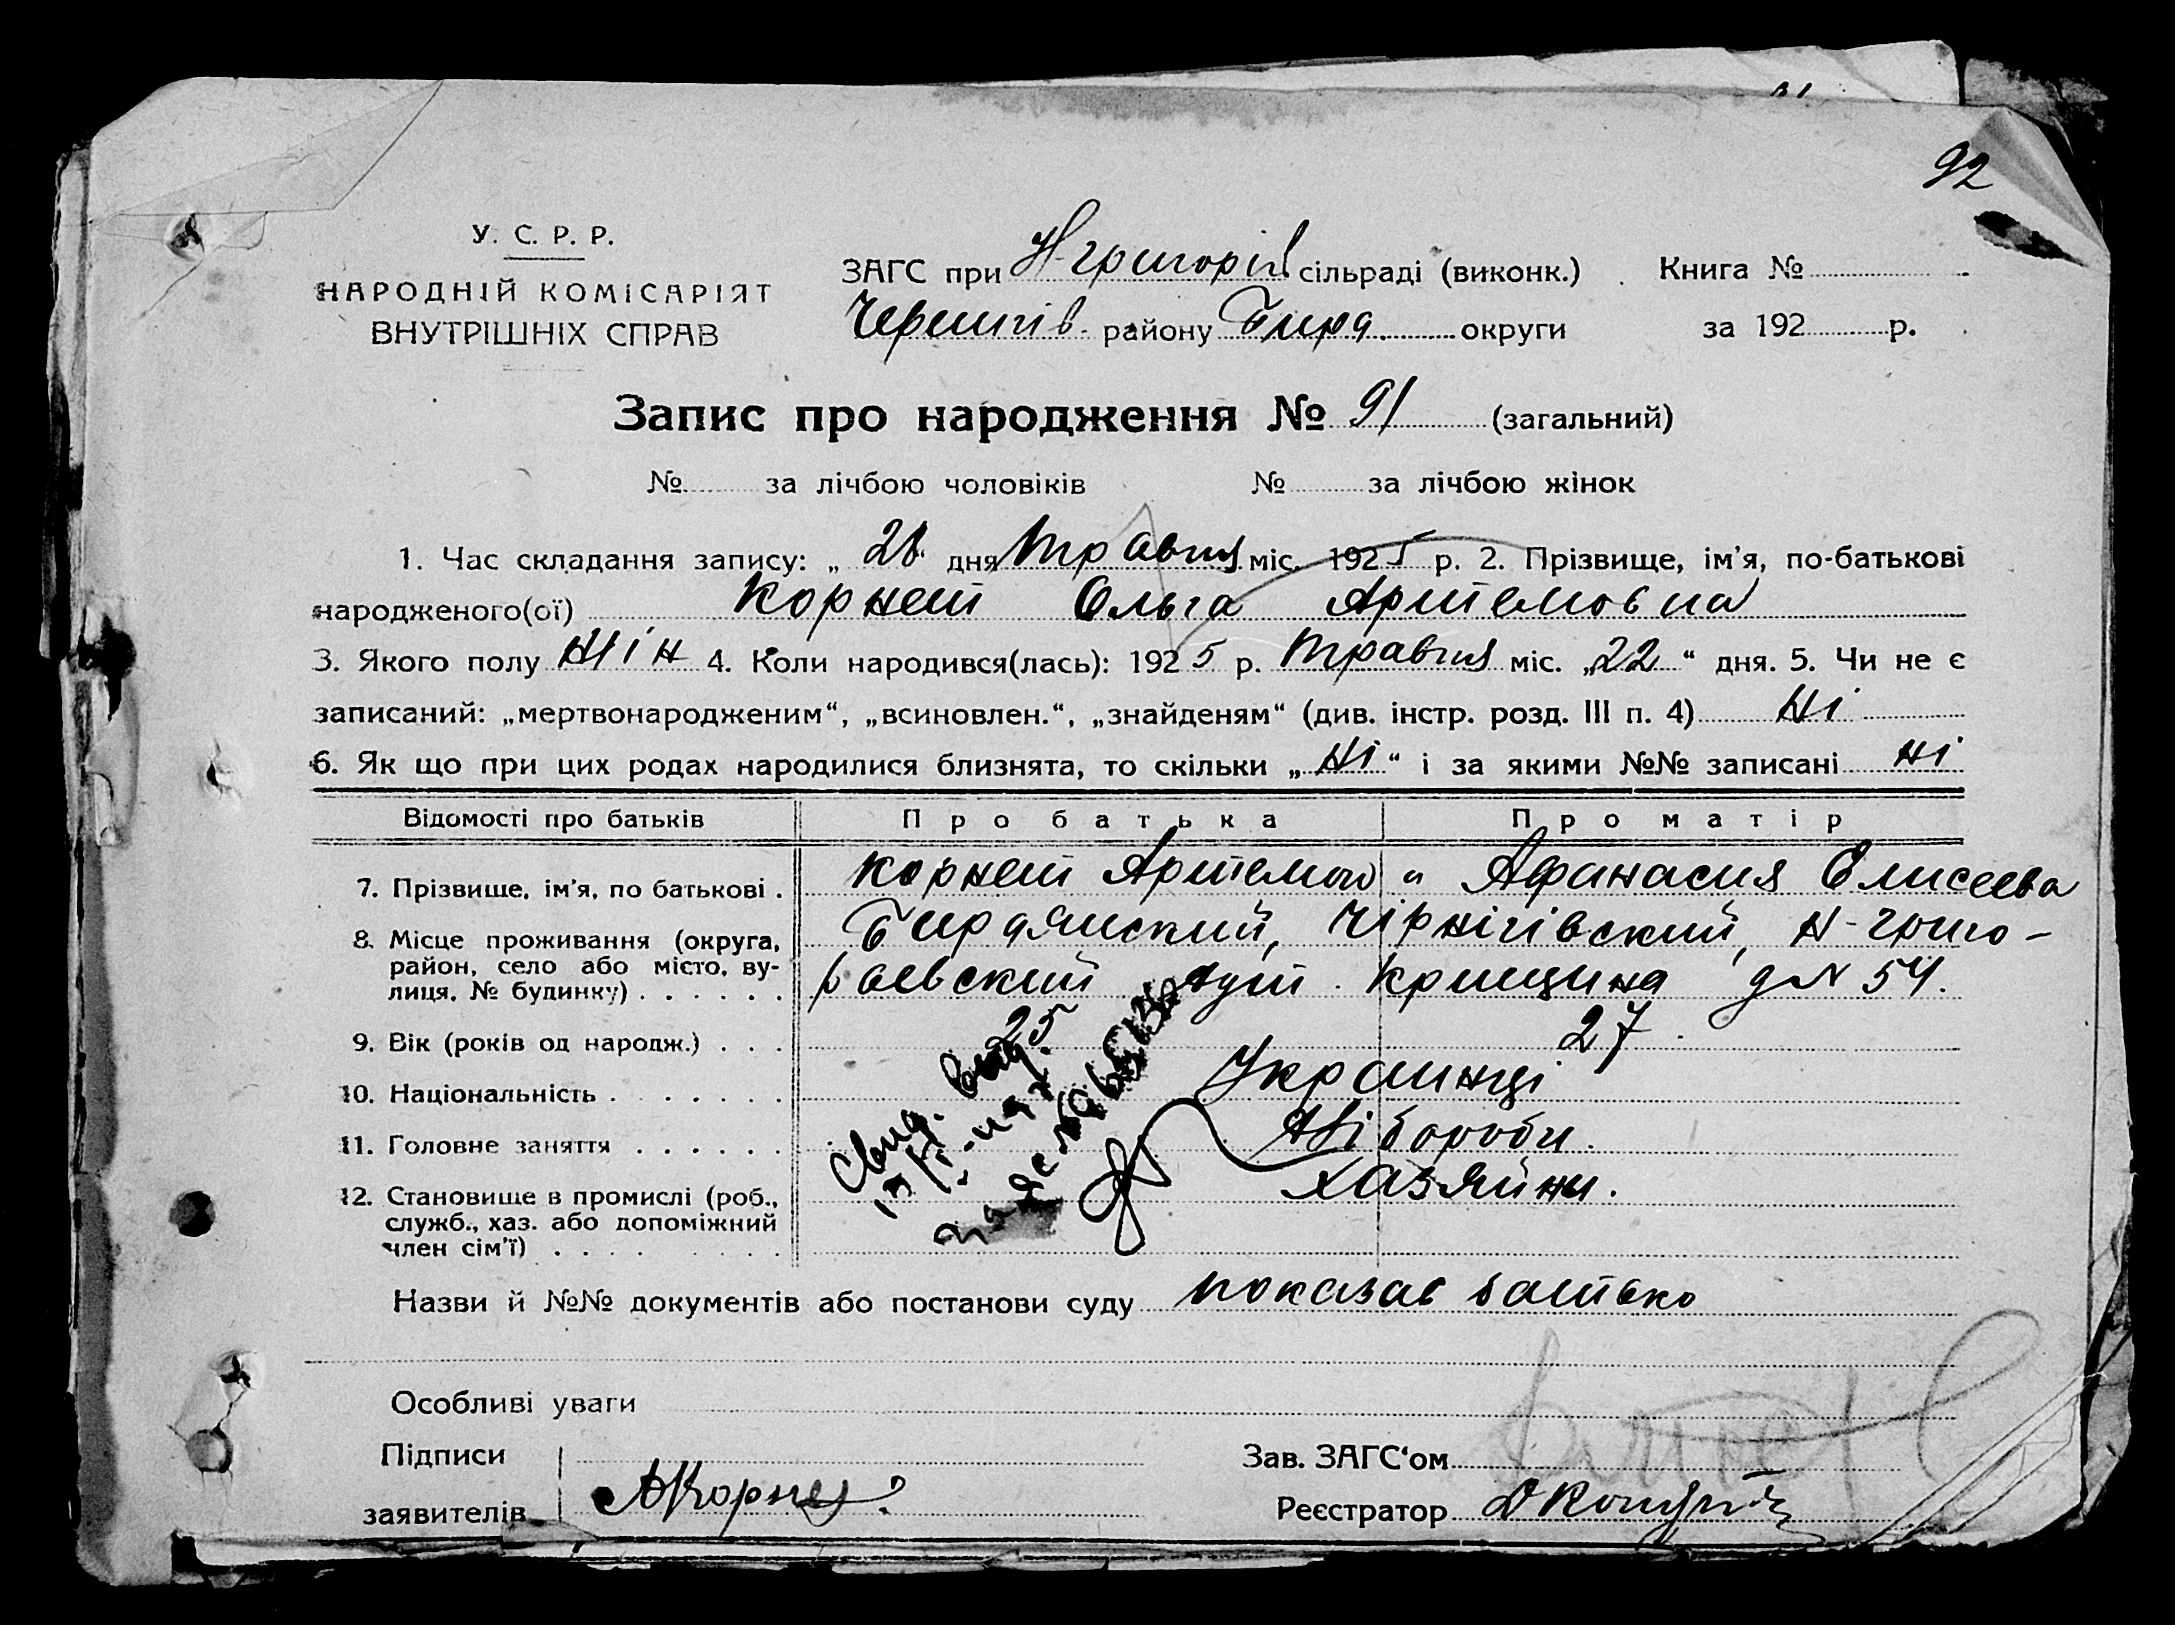 92
У. С. Р. Р.
НАРОДНІЙ КОМІСАРІЯТ
ВНУТРІШНІХ СПРАВ
ЗАГС при Н-григорів сільраді (виконк.) Книга №
Чернигів. району Бирд. округи за 192 р.
Запис про народження № 91 (загальний)
№ за лічбою чоловіків № за лічбою жінок
1. Час складання запису: „ 28 дня Травня міс. 1925 р. 2. Прізвище, ім'я, по-батькові
народженого(ої) Корнет Ольга Артемовна
3. Якого полу жін 4. Коли народився(лась): 1925 р. Травня міс. „22“ дня. 5. Чи не є
записаний: „мертвонародженим“, „всиновлен.“, „знайденям“ (див. інстр. розд. III п. 4) Ні
6. Як що при цих родах народилися близнята, то скільки „Ні“ і за якими №№ записані ні
Відомості про батьків Про батька Про матір
7. Прізвище, ім'я, по батькові . Корнет Артемон „ Афанасия Елисеева
8. Місце проживання (округа, район, село або місто, вулиця, № будинку) . . . . . . Бирдянский, Чірнігівский, Н-григо-
раевский д № 54.
9. Вік (років од народж.) . . . 25 27
10. Національність . . . . . . . Украинці
11. Головне заняття . . . . . . Хліборобы.
12. Становище в промислі (роб., служб., хаз. або допоміжний член сім'ї) . . . . . . . . Хазяйны.
Свид. выд.
Назви й №№ документів або постанови суду показав батько
Особливі уваги
Підписи
заявителів АКорнет
Зав. ЗАГС‘ом
Реєстратор